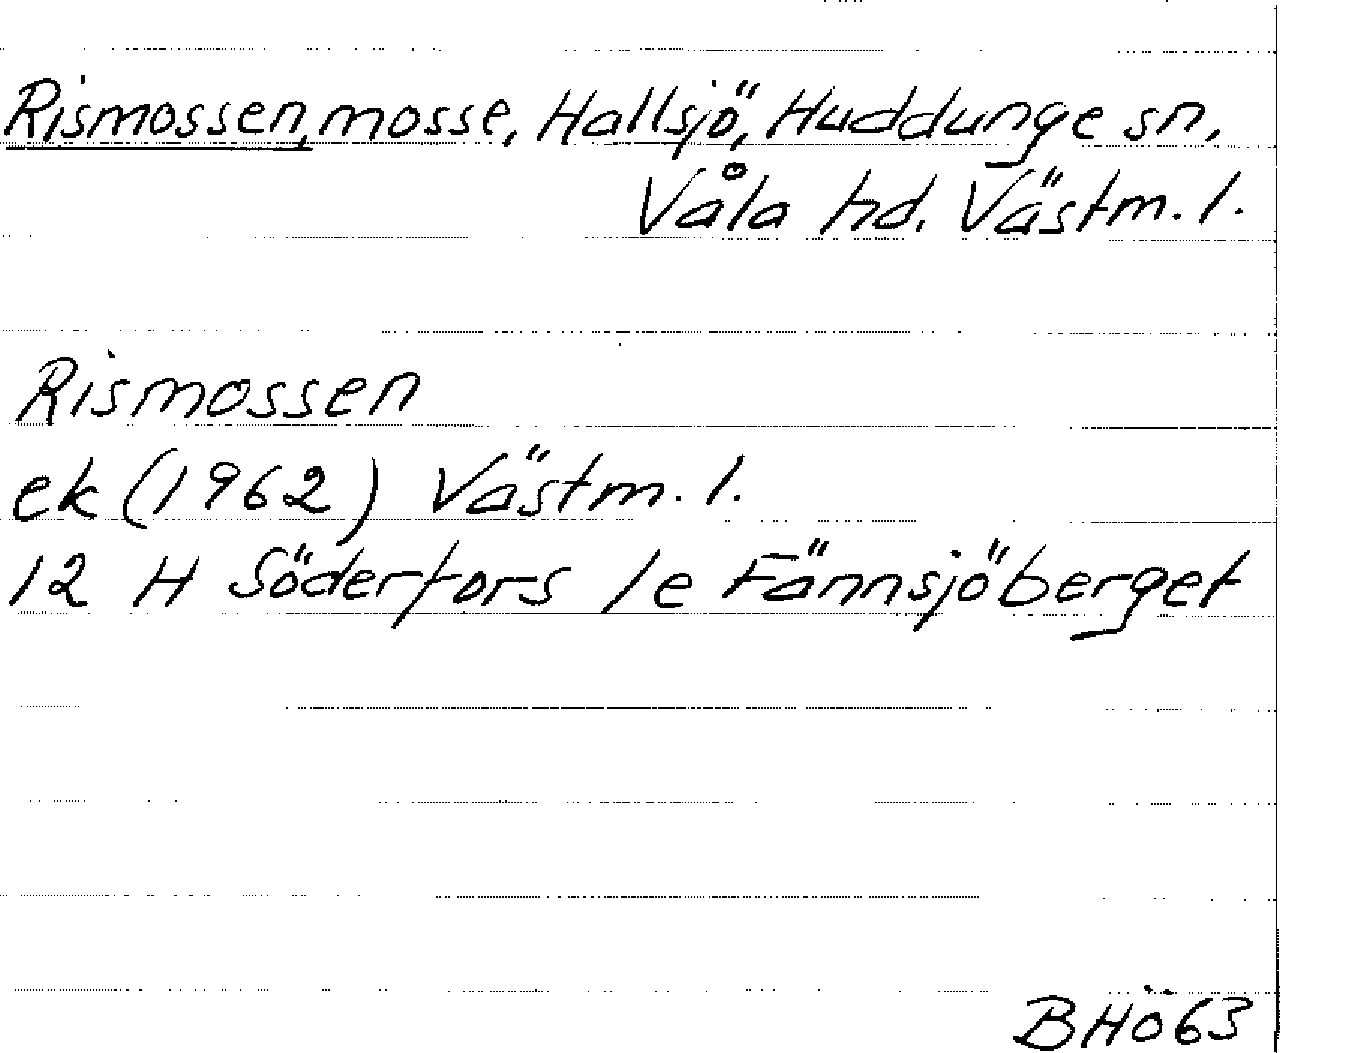 Rismossen, mosse, Hallsjö, Huddunge sn,
Våla hd. Västm. l.
Rismossen
ek (1962) Västm. l.
12 H Söderfors 1e Fännsjöberget
BHÖ63